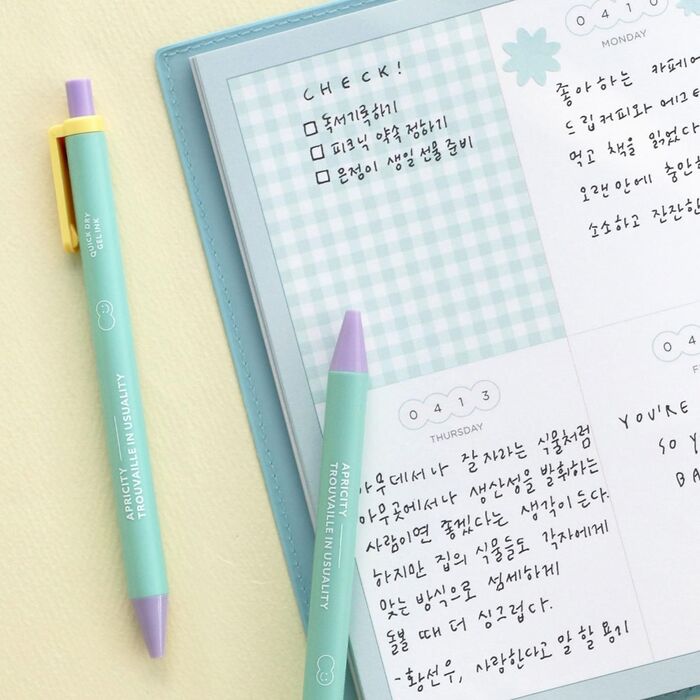 CHECK!
□ 독서기록하기
□ 피크닉 약속 정하기
□ 은정이 생일 선물 준비
0410
MONDAY
좋아하는 카페에
드립커피와
먹고 책을 읽었다
오랜만에
소소하고 잔잔한
0413
THURSDAY
아무데서나 잘 자라는 식물처럼
아무곳에서나 생산성을 발휘하는
사람이면 좋겠다는 생각이 든다.
하지만 집의 식물들도 각자에게
맞는 방식으로 섬세하게
돌볼 때 더 싱그럽다.
-황선우, 사랑한다고 말할 용기
04
YOU'RE
SO
BA
QUICK DRY
GEL INK
APRICITY
TROUVAILLE IN USUALITY
APRICITY
TROUVAILLE IN USUALITY